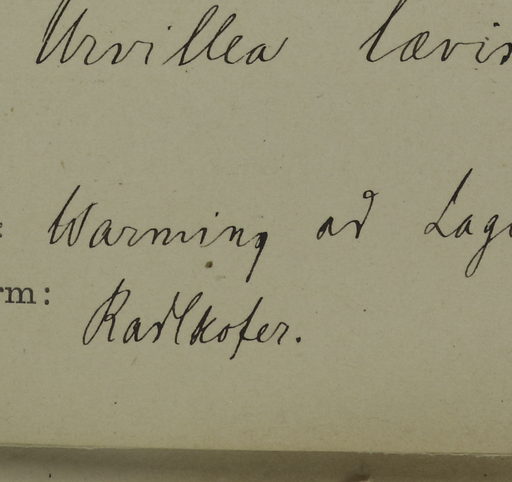 Urvillea lævis
: Warming ad Lago
rm: Radlkofer.